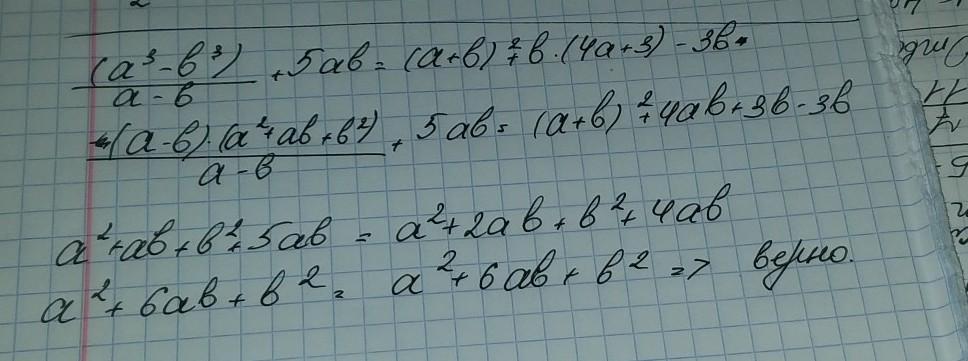 (a³-b³)/(a-b) + 5ab = (a+b)² + b·(4a+3) - 3b
(a-b)·(a²+ab+b²)/(a-b) + 5ab = (a+b)² + 4ab + 3b - 3b
a²+ab+b²+5ab = a²+2ab+b²+4ab
a²+6ab+b² = a²+6ab+b² => верно.